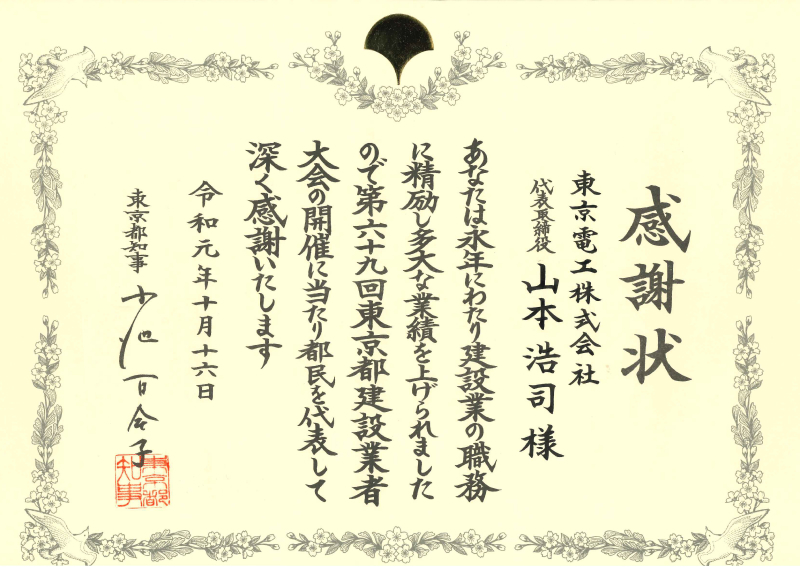 感謝状
東京電工株式会社
代表取締役 山本浩司様
あなたは永年にわたり建設業の職務
に精励し多大な業績を上げられました
ので第六十九回東京都建設業者
大会の開催に当たり都民を代表して
深く感謝いたします
令和元年十月十六日
東京都知事 小池百合子
東京都
知事